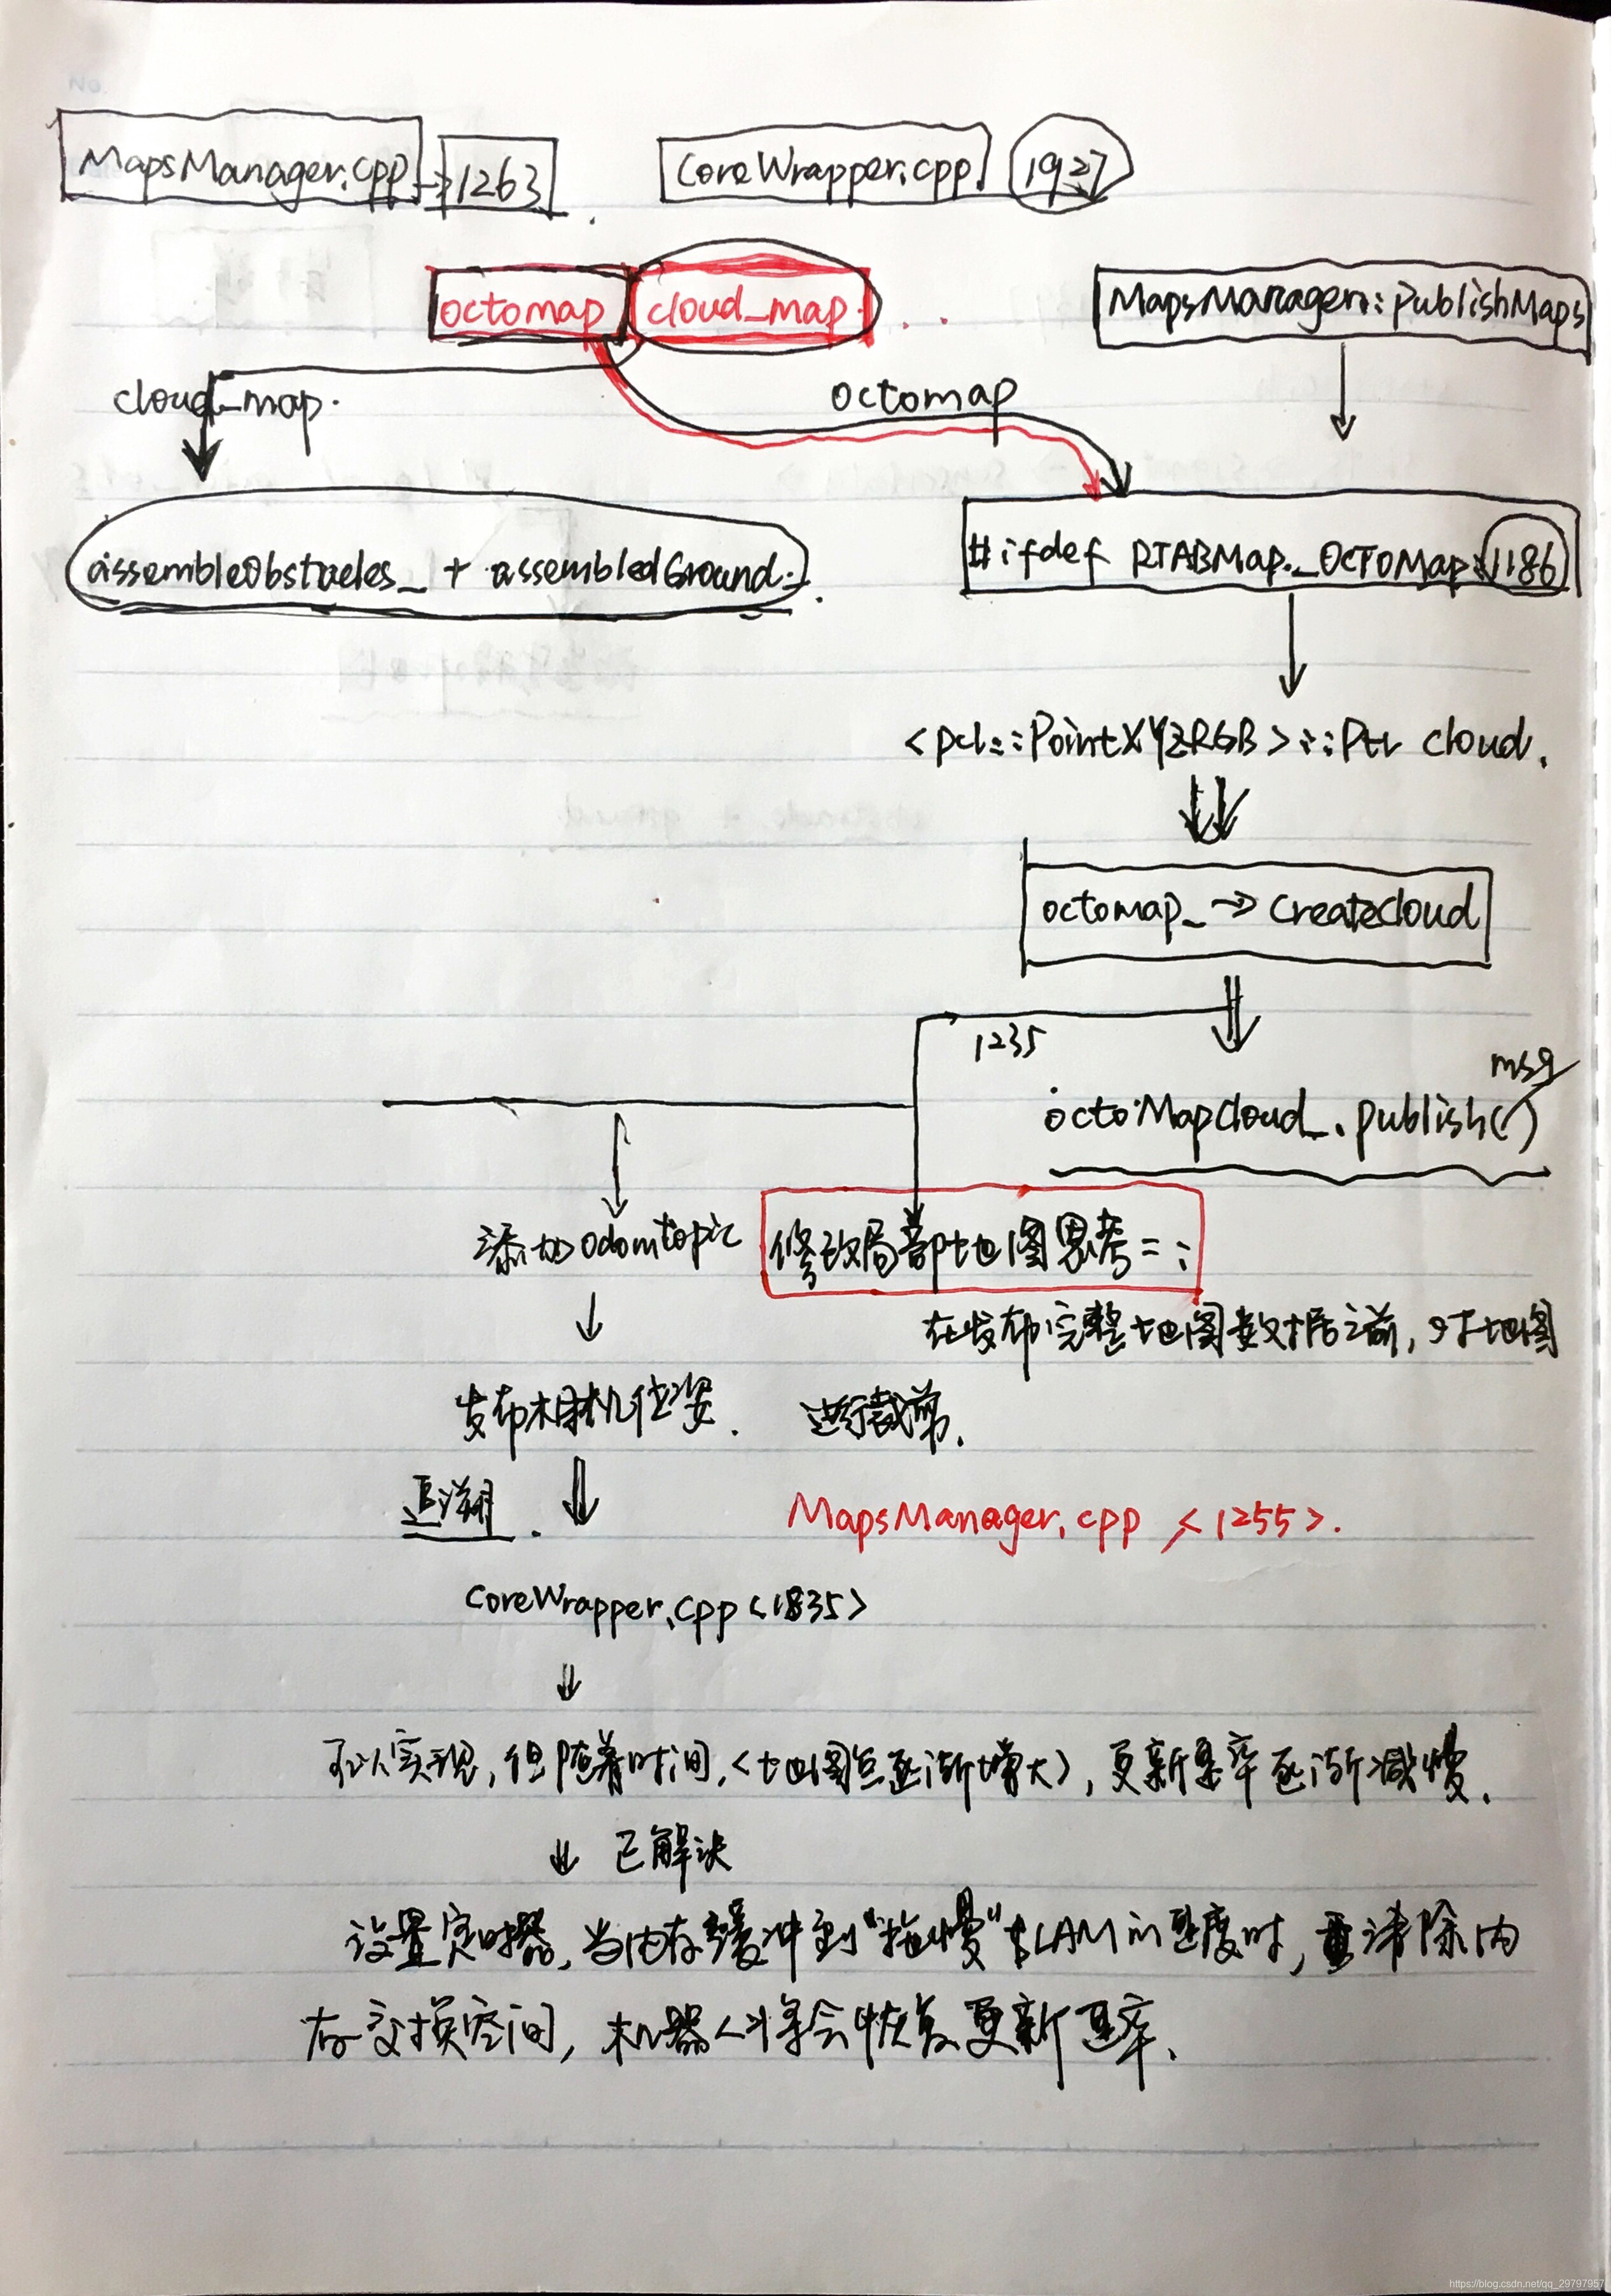 MapsManager.cpp → 1263 CoreWrapper.cpp 1927
octomap cloud_map. . . MapsManager::publishMaps
cloud_map. octomap
assembleObstacles_ + assembledGround_. #ifdef RTABMap_OCTOMap 1186
<pcl::PointXYZRGB>::Ptr cloud.
octomap_ → createcloud
1235
msg
octoMapCloud_.publish( )
添加odomtopic 修改局部地图思考二:
在发布完整地图数据之前,对地图
发布相机位姿. 进行裁剪.
追溯.
MapsManager.cpp <1255>.
CoreWrapper.cpp <1835>
可以实现,但随着时间,<地图点逐渐增大>,更新速率逐渐减慢.
已解决
设置定时器,当内存缓冲到"拖慢"SLAM的速度时,清除内
存交换空间,机器人将会恢复更新速率.
https://blog.csdn.net/qq_29797957